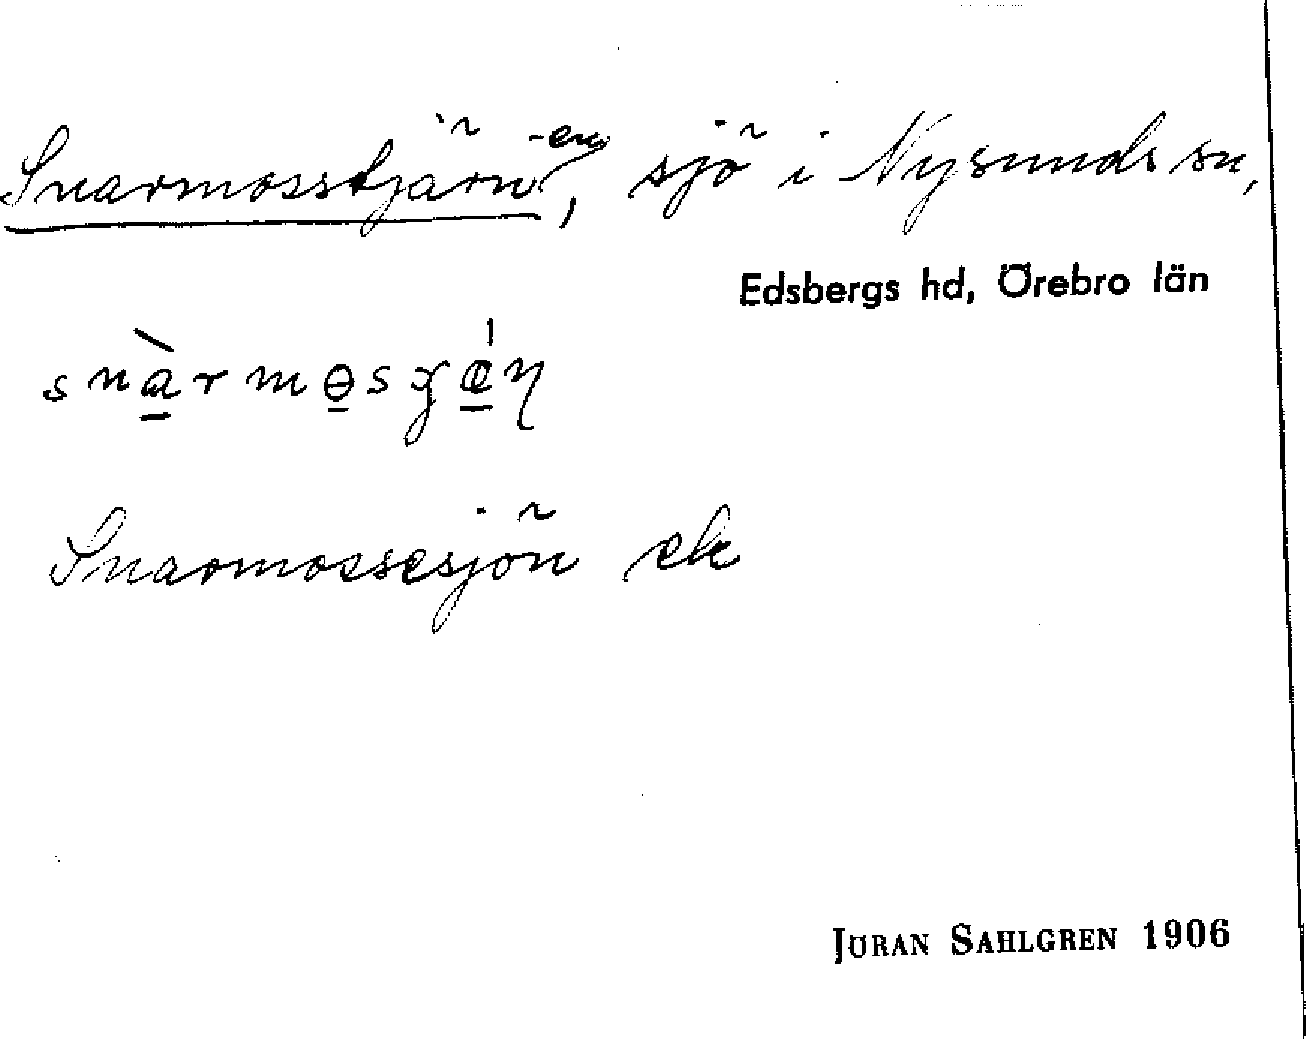 Snarmosstjärn -en, sjö i Nysunds sn,
Edsbergs hd, Örebro län
Snarmossesjön ek
JÖRAN SAHLGREN 1906